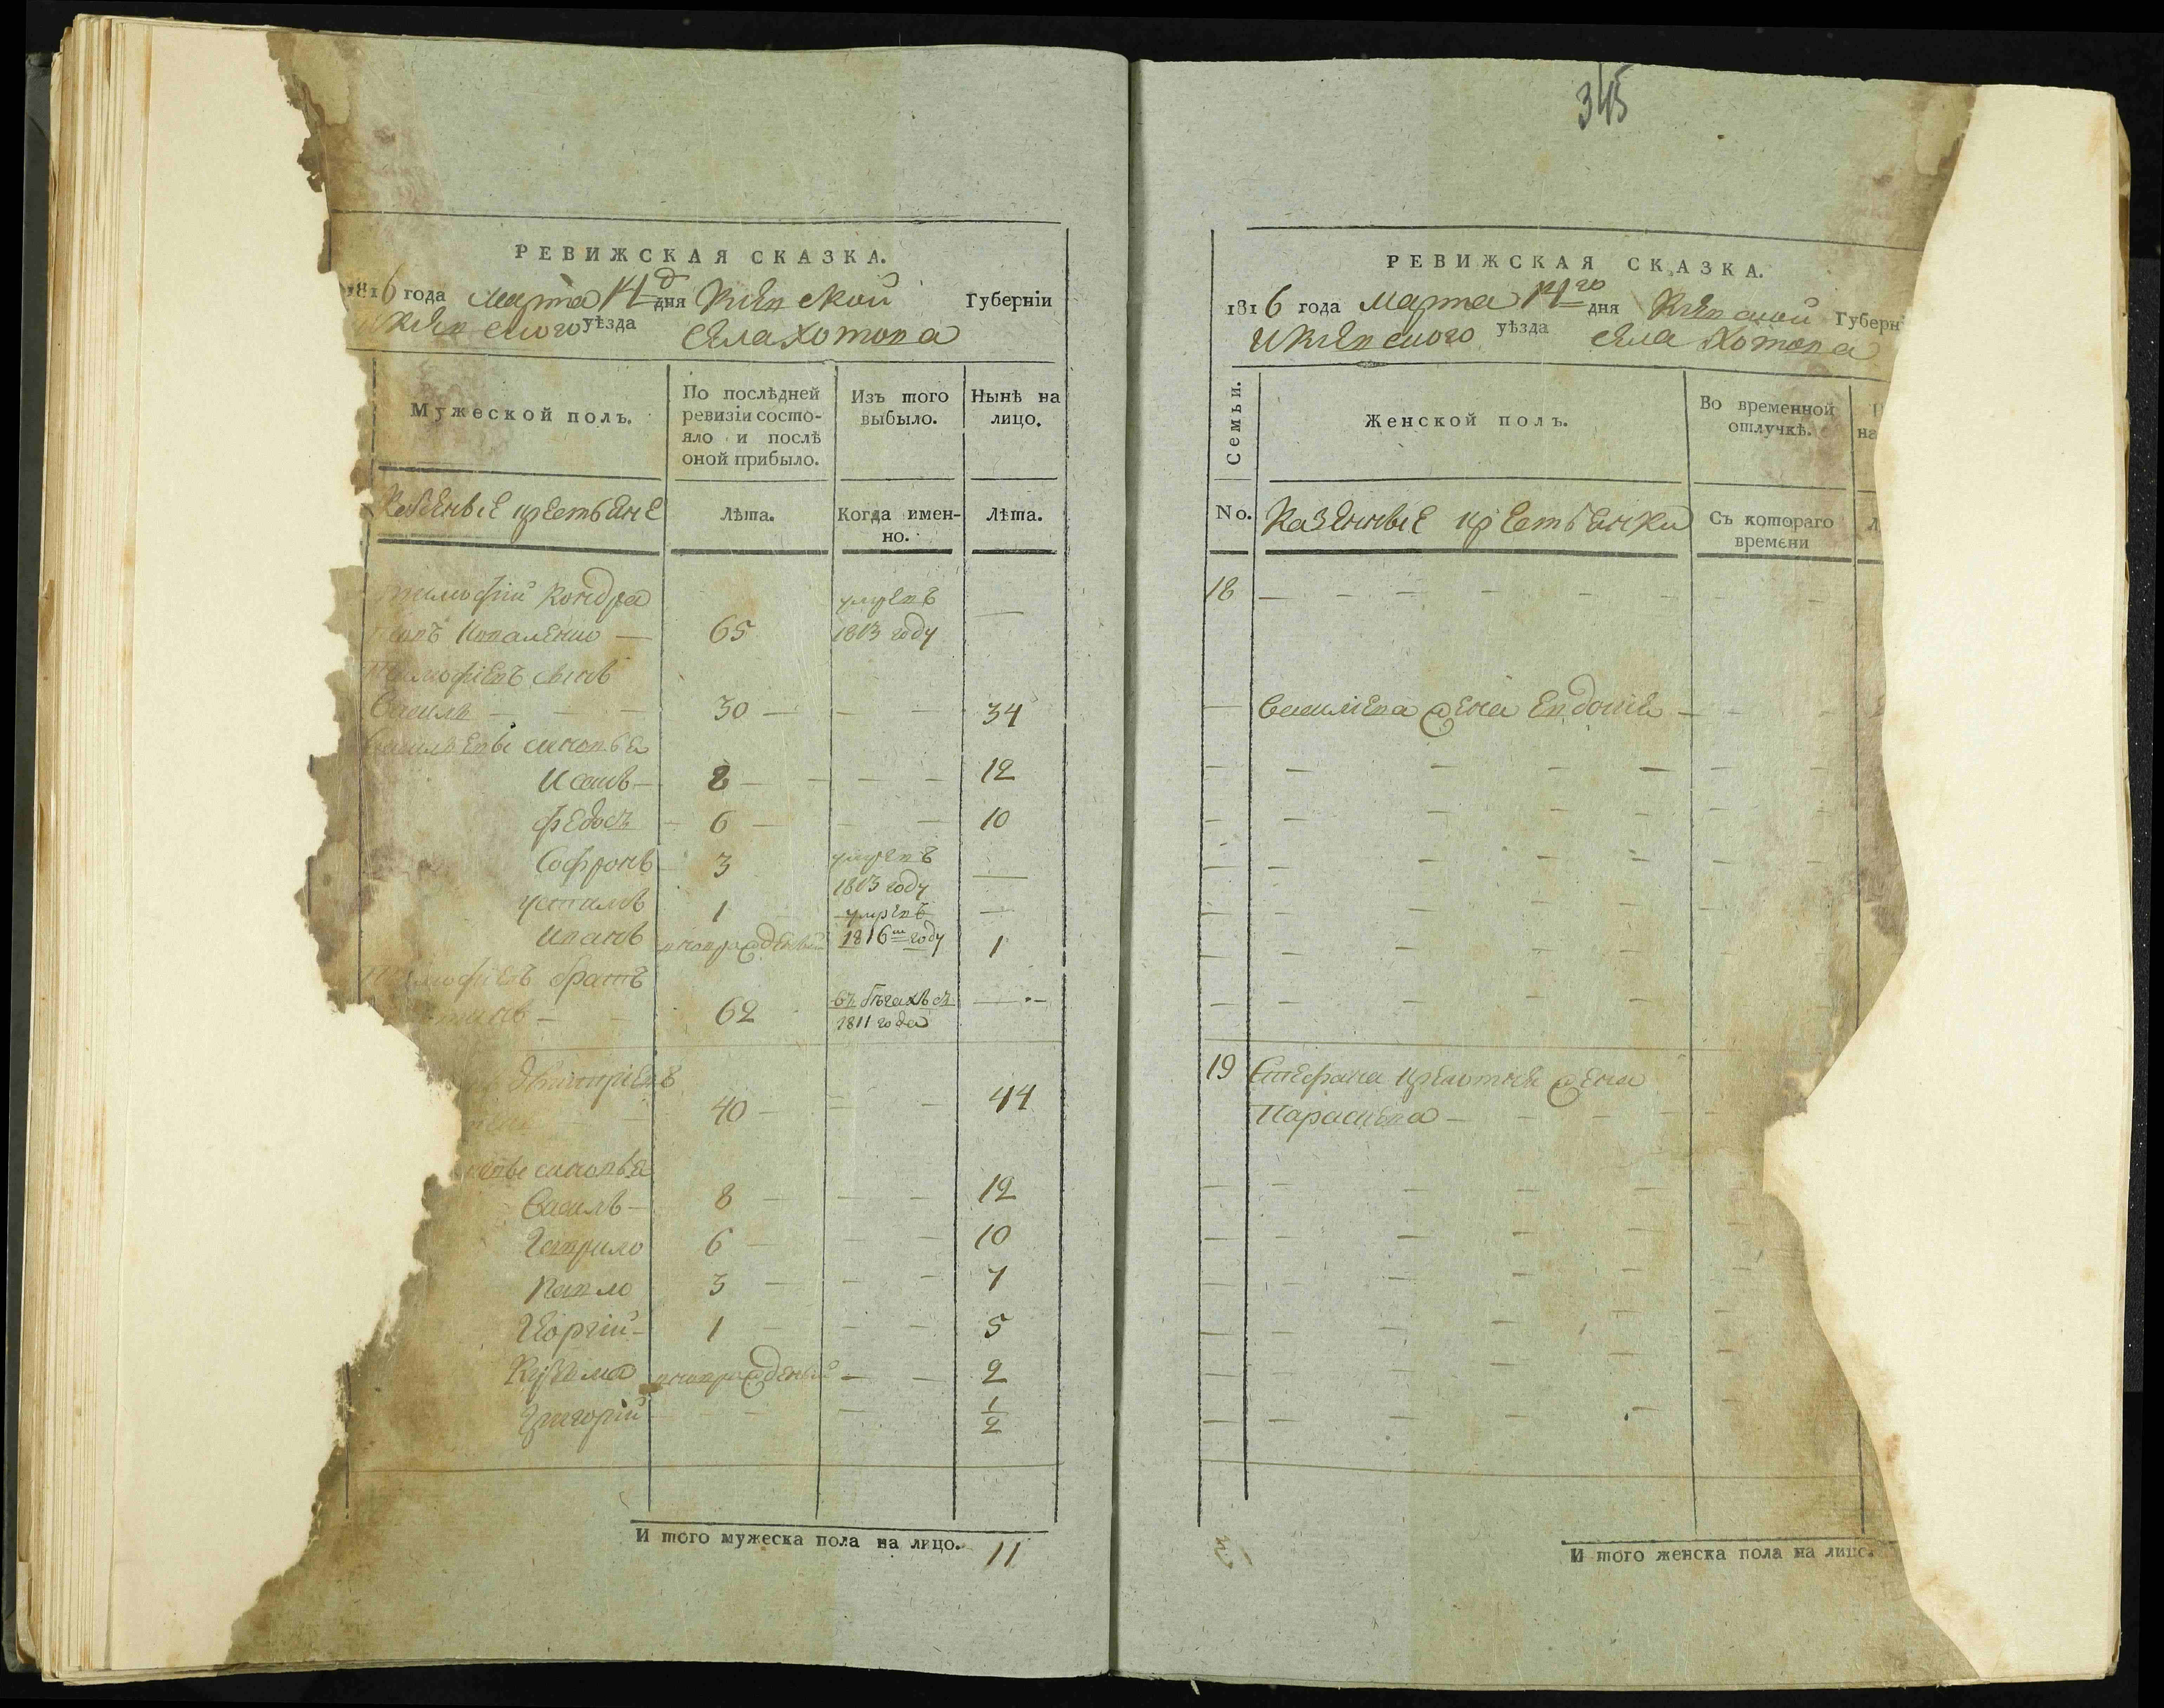 РЕВИЖСКАЯ СКАЗКА.
1816 года Марта 14 д дня Киевской Губерніи
И Киевского уѣзда села Хотова
Мужеской полъ.
По послѣдней ревизіи состо-
яло и послѣ
оной прибыло.
Изъ того
выбыло.
Нынѣ на
лицо.
Казенные крестьяне
Лѣта.
Когда имен-
но.
Лѣта.
Тимофій Кондра
65
умревъ
1813 году
Тимофіевъ сынъ
Василь 30 34
Васильевы синовья
Исакъ 8 12
Федосъ 6 10
Софронъ 3 умревъ
1813 году
1 умревъ
Иванъ новорожденный 1816 году 1
Тимофіевъ братъ
62 въ бѣгахъ съ
1811 года
Дмитріевъ
40 44
синовья
Василь 8 12
Гаврило 6 10
Павло 3 7
Георгій 1 5
Кузьма новорожденный 2
Григорій 1/2
И того мужеска пола на лицо. 11
345
РЕВИЖСКАЯ СКАЗКА.
1816 года Марта 14го дня Киевской Губерн
И Киевского уѣзда села Хотова
Семьи.
Женской полъ.
Во временной
отлучкѣ.
на
No.
Казенные крестьянки
Съ котораго
времени
Л
18
Василиева жена Евдокія
19 Стефана жена
Параскева
И того женска пола на лицо.